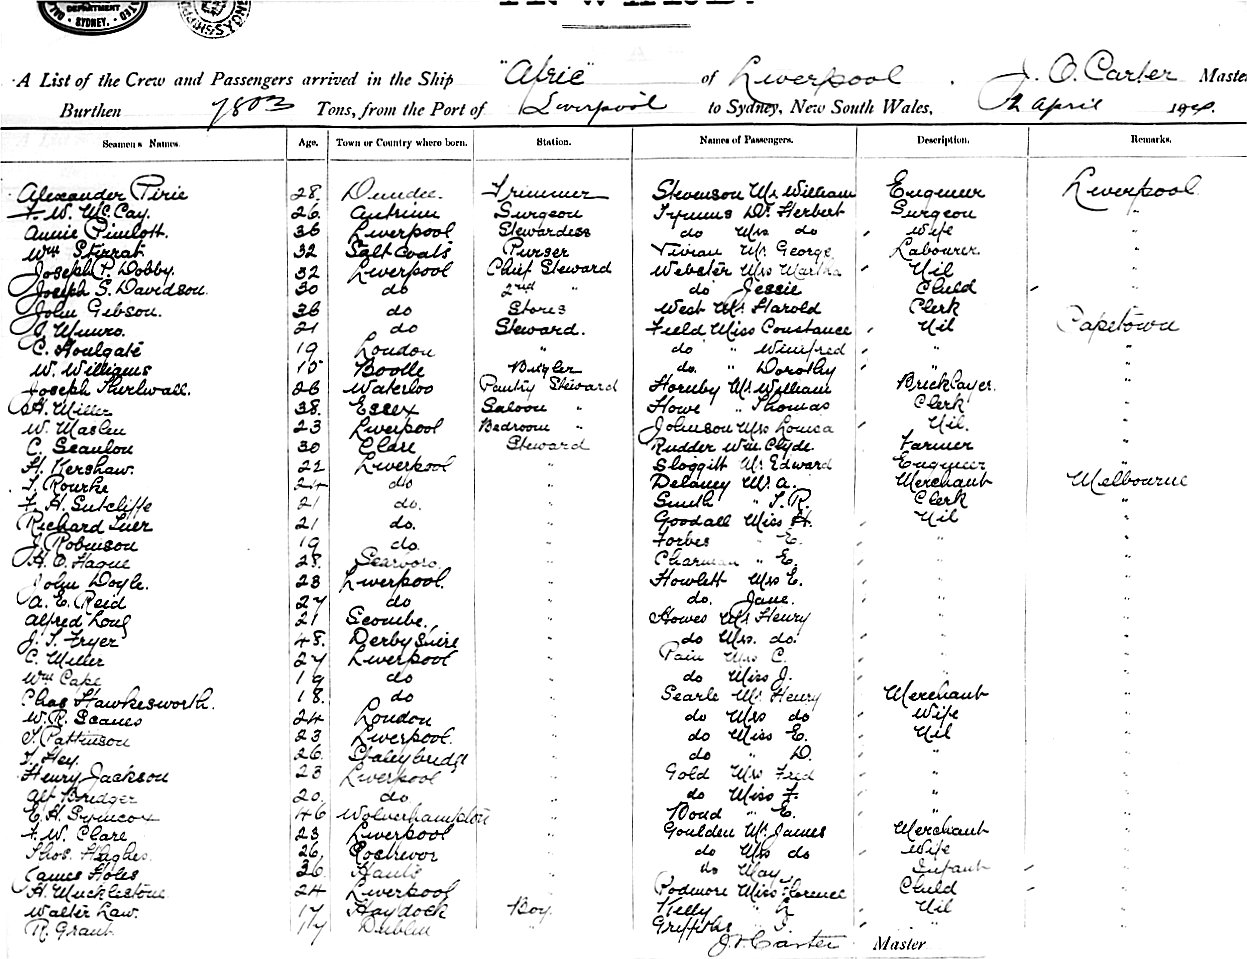 DEPARTMENT
SYDNEY.
A List of the Crew and Passengers arrived in the Ship "Afric" of Liverpool. J. O. Carter Master
Burthen 7803 Tons, from the Port of Liverpool to Sydney, New South Wales, April
Seamen's Names. Age. Town or Country where born. Station. Names of Passengers. Description. Remarks.
Alexander Pirie 28 Dundee Trimmer Stevenson Mr William Engineer Liverpool
F. W. McCay. 26 Antrim Surgeon Dr Herbert Surgeon "
Annie Pimlott. 36 Liverpool Stewardess do Mrs do Wife "
Wm Stirrat 32 Saltcoats Purser Vivian Mr George Labourer "
Joseph P. Dobby. 32 Liverpool Chief Steward Webster Mrs Martha Nil "
Joseph S. Davidson. 30 do 2nd " do Jessie Child "
John Gibson. 36 do Stores West Mr Harold Clerk "
J. Munro. 21 do Steward. Field Miss Constance Nil Capetown
C. Houlgate 19 London " do " Winifred " "
W. Williams 15 Bootle Bugler do. " Dorothy " "
Joseph Thirlwall. 26 Waterloo Pantry Steward Hornby Mr William Bricklayer. "
H. Miller 38. Essex Saloon " Howe " Thomas Clerk "
W. Maslin 23 Liverpool Bedroom " Johnson Mrs Louisa Nil. "
C. Scanlon 30 Clare Steward Rudder Wm Clyde. Farmer "
H. Kershaw. 22 Liverpool " Sloggitt Mr Edward Engineer "
T. Rourke 24 do " Delaney Mr A. Merchant Melbourne
F. H. Sutcliffe 21 do. " Smith " T. R. Clerk "
Richard 21 do. " Goodall Miss H. Nil "
J. Robinson 19 do. " Forbes " E. " "
H. O. Hague 28. Scarboro. " Charman " E. " "
John Doyle. 23 Liverpool. " Howlett Mrs E. " "
A. E. Reid 27 do " do. Jane. " "
Alfred Long 21 Seacombe. " Howes Mr Henry " "
J. T. Fryer 48. Derbyshire " do Mrs. do. " "
C. Miller 27 Liverpool " Pain Mrs C. " "
Wm Cape 19 do " do Miss J. " "
Chas Hawkesworth. 18. do " Searle Mr Henry Merchant "
W. R. Seanes 24 London " do Mrs do Wife "
T. Pattinson 23 Liverpool. " do Miss E. Nil "
T. Hey. 26. Staleybridge " do " D. " "
Henry Jackson 23 Liverpool " Gold Mrs Fred " "
Alf Bridger 20. do " do Miss F. " "
E. H. Symcox 46 Wolverhampton " " E. " "
F. W. Clare 23 Liverpool " Goulden Mr James Merchant "
Thos. Hughes. 26. Rostrevor " do Mrs do Wife "
James Holes 36 Hants " do May, Infant "
H. Mucklestone 24 Liverpool " Podmore Miss Florence Child "
Walter Law. 17 Haydock Boy. Kelly " Nil "
R. Grant 17 Dublin " Griffiths "
J. O. Carter Master